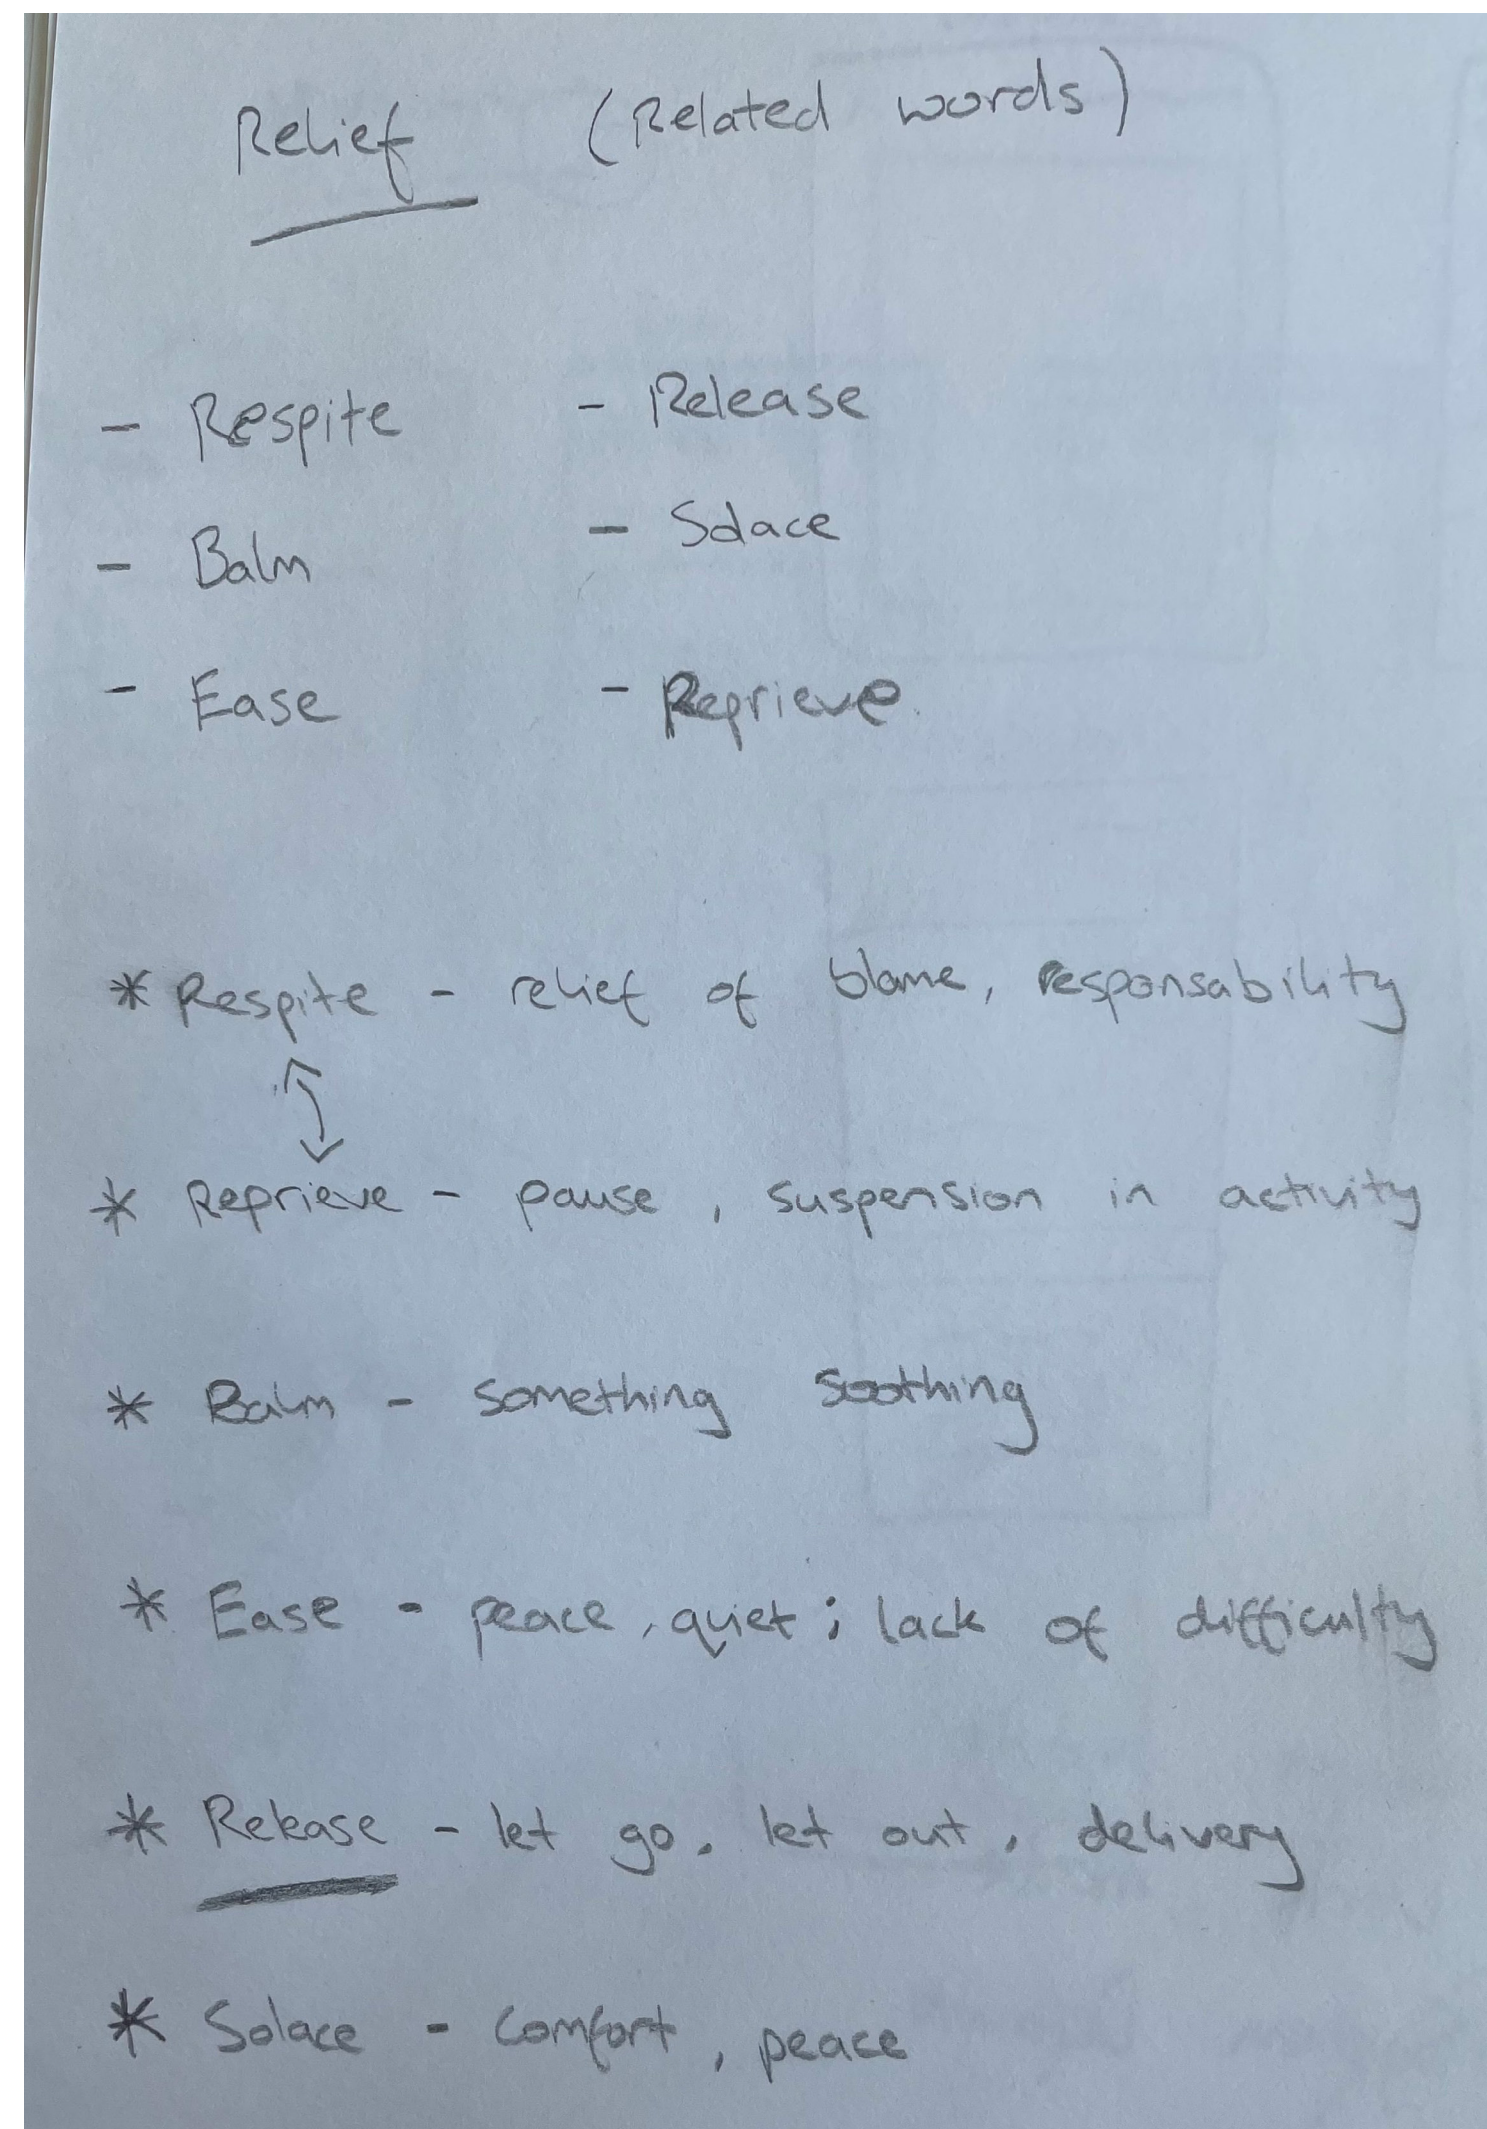 Relief (Related words)
- Respite - Release
- Balm - Solace
- Ease - Reprieve
* Respite - relief of blame, responsability
* Reprieve - pause, suspension in activity
* Balm - something soothing
* Ease - peace, quiet; lack of difficulty
* Release - let go, let out, delivery
* Solace - comfort, peace